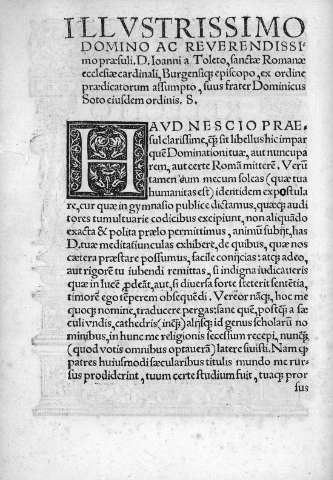 ILLVSTRISSIMO
DOMINO AC REVERENDISSI-
mo præsuli. D. Ioanni a Toleto, sanctæ Romanæ
ecclesiæ cardinali, Burgensiq; episcopo, ex ordine
prædicatorum assumpto, suus frater Dominicus
Soto eiusdem ordinis. S.
HAVD NESCIO PRAE-
sul clarissime, q̃ sit libellus hic impar
quẽ Dominationi tuæ, aut nuncupa
rem, aut certe Romã mitterẽ. Verũ
tamen dum mecum soleas (quæ tua
humanitas est) identidem expostula
re, cur quæ in gymnasio publice dictamus, quæq; audi
tores tumultuarie codicibus excipiunt, non aliquãdo
exacta & polita prælo permittimus, animũ subijt, has
D. tuæ meditatiunculas exhibere, de quibus, quæ nos
cætera præstare possumus, facile conijcias: atq; adeo,
aut rigore tu iubendi remittas, si indigna iudicaueris
quæ in lucẽ ꝓdeãt, aut, si diuersa forte steterit sententia,
timorẽ ego tẽperem obsequẽdi. Vereor nãq;, hoc me
quoq; nomine, traducere pergas: sane quẽ, postq̃ a sæ
culi vndis, cathedris (inq̃) alijsq; id genus scholarũ no
minibus, in hunc me religionis secessum recepi, nunq̃
(quod votis omnibus optauerã) latere siuisti. Nam cũ
patres huiusmodi sæcularibus titulis mundo me rur-
sus prodiderint, tuum certe studium fuit, tuaq; pror
sus